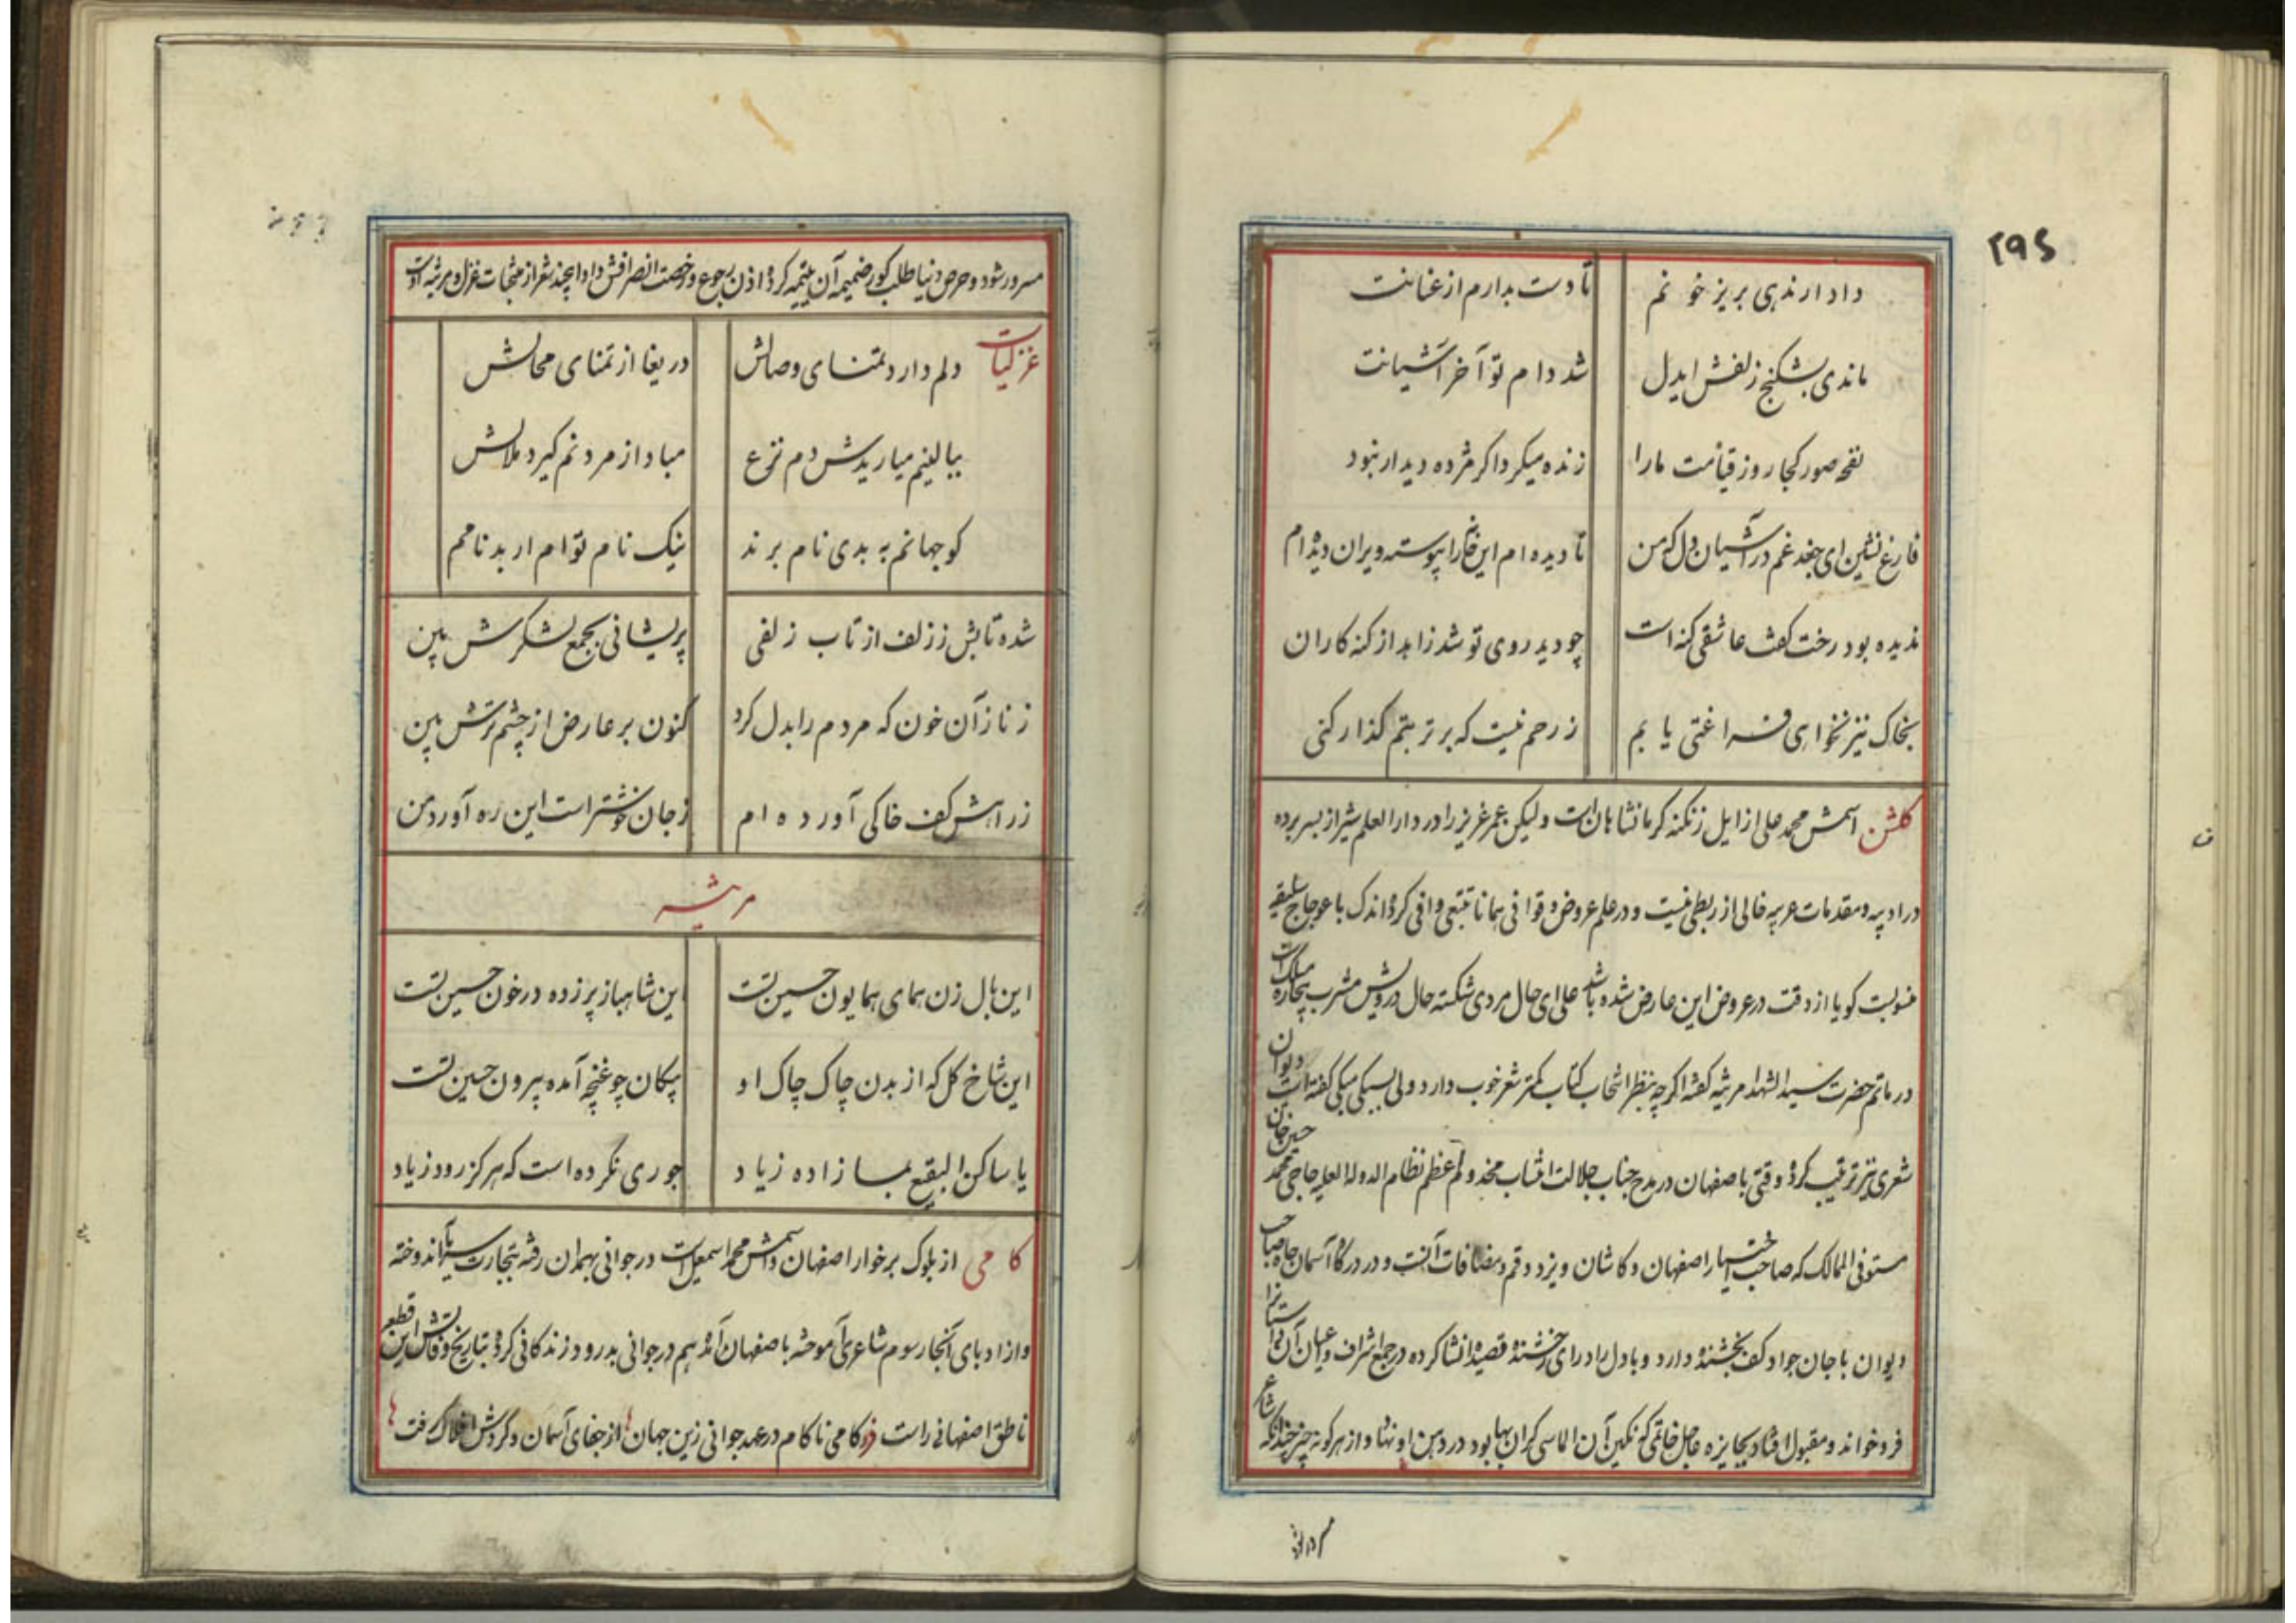 ۲۹۶
داد ار ندهی بریز خونم تا دست بدارم از عنانت
ماندی بشکنج زلفش ایدل شد دام تو آخر آشیانت
نفخه صور کجا روز قیامت ما را زنده میکرد اکر مژده دیدار نبود
فارغ نشین ای جغد غم در آشیان دل که من تا دیده ام این خانه را پیوسته ویران دیده ام
ندیده بود رخت کفت عاشقی کنه است چو دید روی تو شد زاهد از کنه کاران
بخاک نیز نخواهی فراغتی یابم ز رحم نیست که بر تربتم کذار کنی
کلشن اسمش محمد علی از ایل زنکنه کرمانشاهان است ولیکن عمر عزیز را در دار العلم شیراز بسر برده
در ادبیه و مقدمات عربیه خالی از ربطی نیست و در علم عروض و قوافی همانا تتبعی وافی کرده اندک باعوجاج سلیقه
منسوبست کویا از دقت در عروض این عارض شده باشد علی ای حال مردی شکسته حال درویش مشرب بیچاره مسلک است
در ماتم حضرت سید الشهدا مرثیه کفته اکرچه بنظر انتخاب کتاب کمتر شعر خوب دارد ولی بسبکی نیکی کفته است دیوان
شعری نیز ترتیب کرده وقتی باصفهان در مدح جناب جلالت انتساب مخدوم اعظم نظام الدوله العلیه حاجی محمد حسین خان
مستوفی الممالک که صاحب اختیار اصفهان و کاشان و یزد و قم و مضافات آنست و در درکاه آسمان جاه صاحب
دیوان با جان جواد کف بخشنده دارد و با دل راد رای رخشنده قصیده انشا کرده در مجمع اشراف و اعیان آن
فرو خواند و مقبول افتاد بجایزه خاتمی که نکین آن الماسی کران بها بود در دهن او نهاد و از هر کونه چیز چندانکه شاعر
مسرور شود
مسرور شود و حرص دنیا طلب کور ضمیمه آن تتمه کرده اذن رجوع و رخصت انصرافش داد این چند شعر از منتخبات غزل و مرثیه اوست
غزلیات دلم دارد تمنای وصالش دریغا از تمنای محالش
ببالینم میاریدش دم نزع مباد از مردنم کیرد ملالش
کو جهانم به بدی نام برند نیک نام توام ار بدنامم
شده تابش ز زلف از تاب زلفی پریشانی بجمع لشکرش بین
ز ناز آن خون که مردم را بدل کرد کنون بر عارض از چشم ترش بین
ز راهش کف خاکی آورده ام ز جان خوشتر است این ره آورد من
مرثیه
این بال زن همای همایون حسین تست این شاهباز پر زده در خون حسین تست
این شاخ کل که از بدن چاک چاک او پیکان چو غنچه آمده بیرون حسین تست
یا ساکن البقیع بما زاده زیاد جوری نکرده است که هرکز رود ز یاد
کامی از بلوک برخوار اصفهان و اسمش محمد اسمعیل است در جوانی بهمدان رفته بتجارت سرمایه اندوخته
و از ادبای آنجا رسوم شاعری آموخته باصفهان آمده هم در جوانی بدرود زندکانی کرده بتاریخ وفاتش این قطعه
ناطق اصفهانی راست کامی ناکام در عهد جوانی زین جهان از جفای آسمان و کردش افلاک رفت